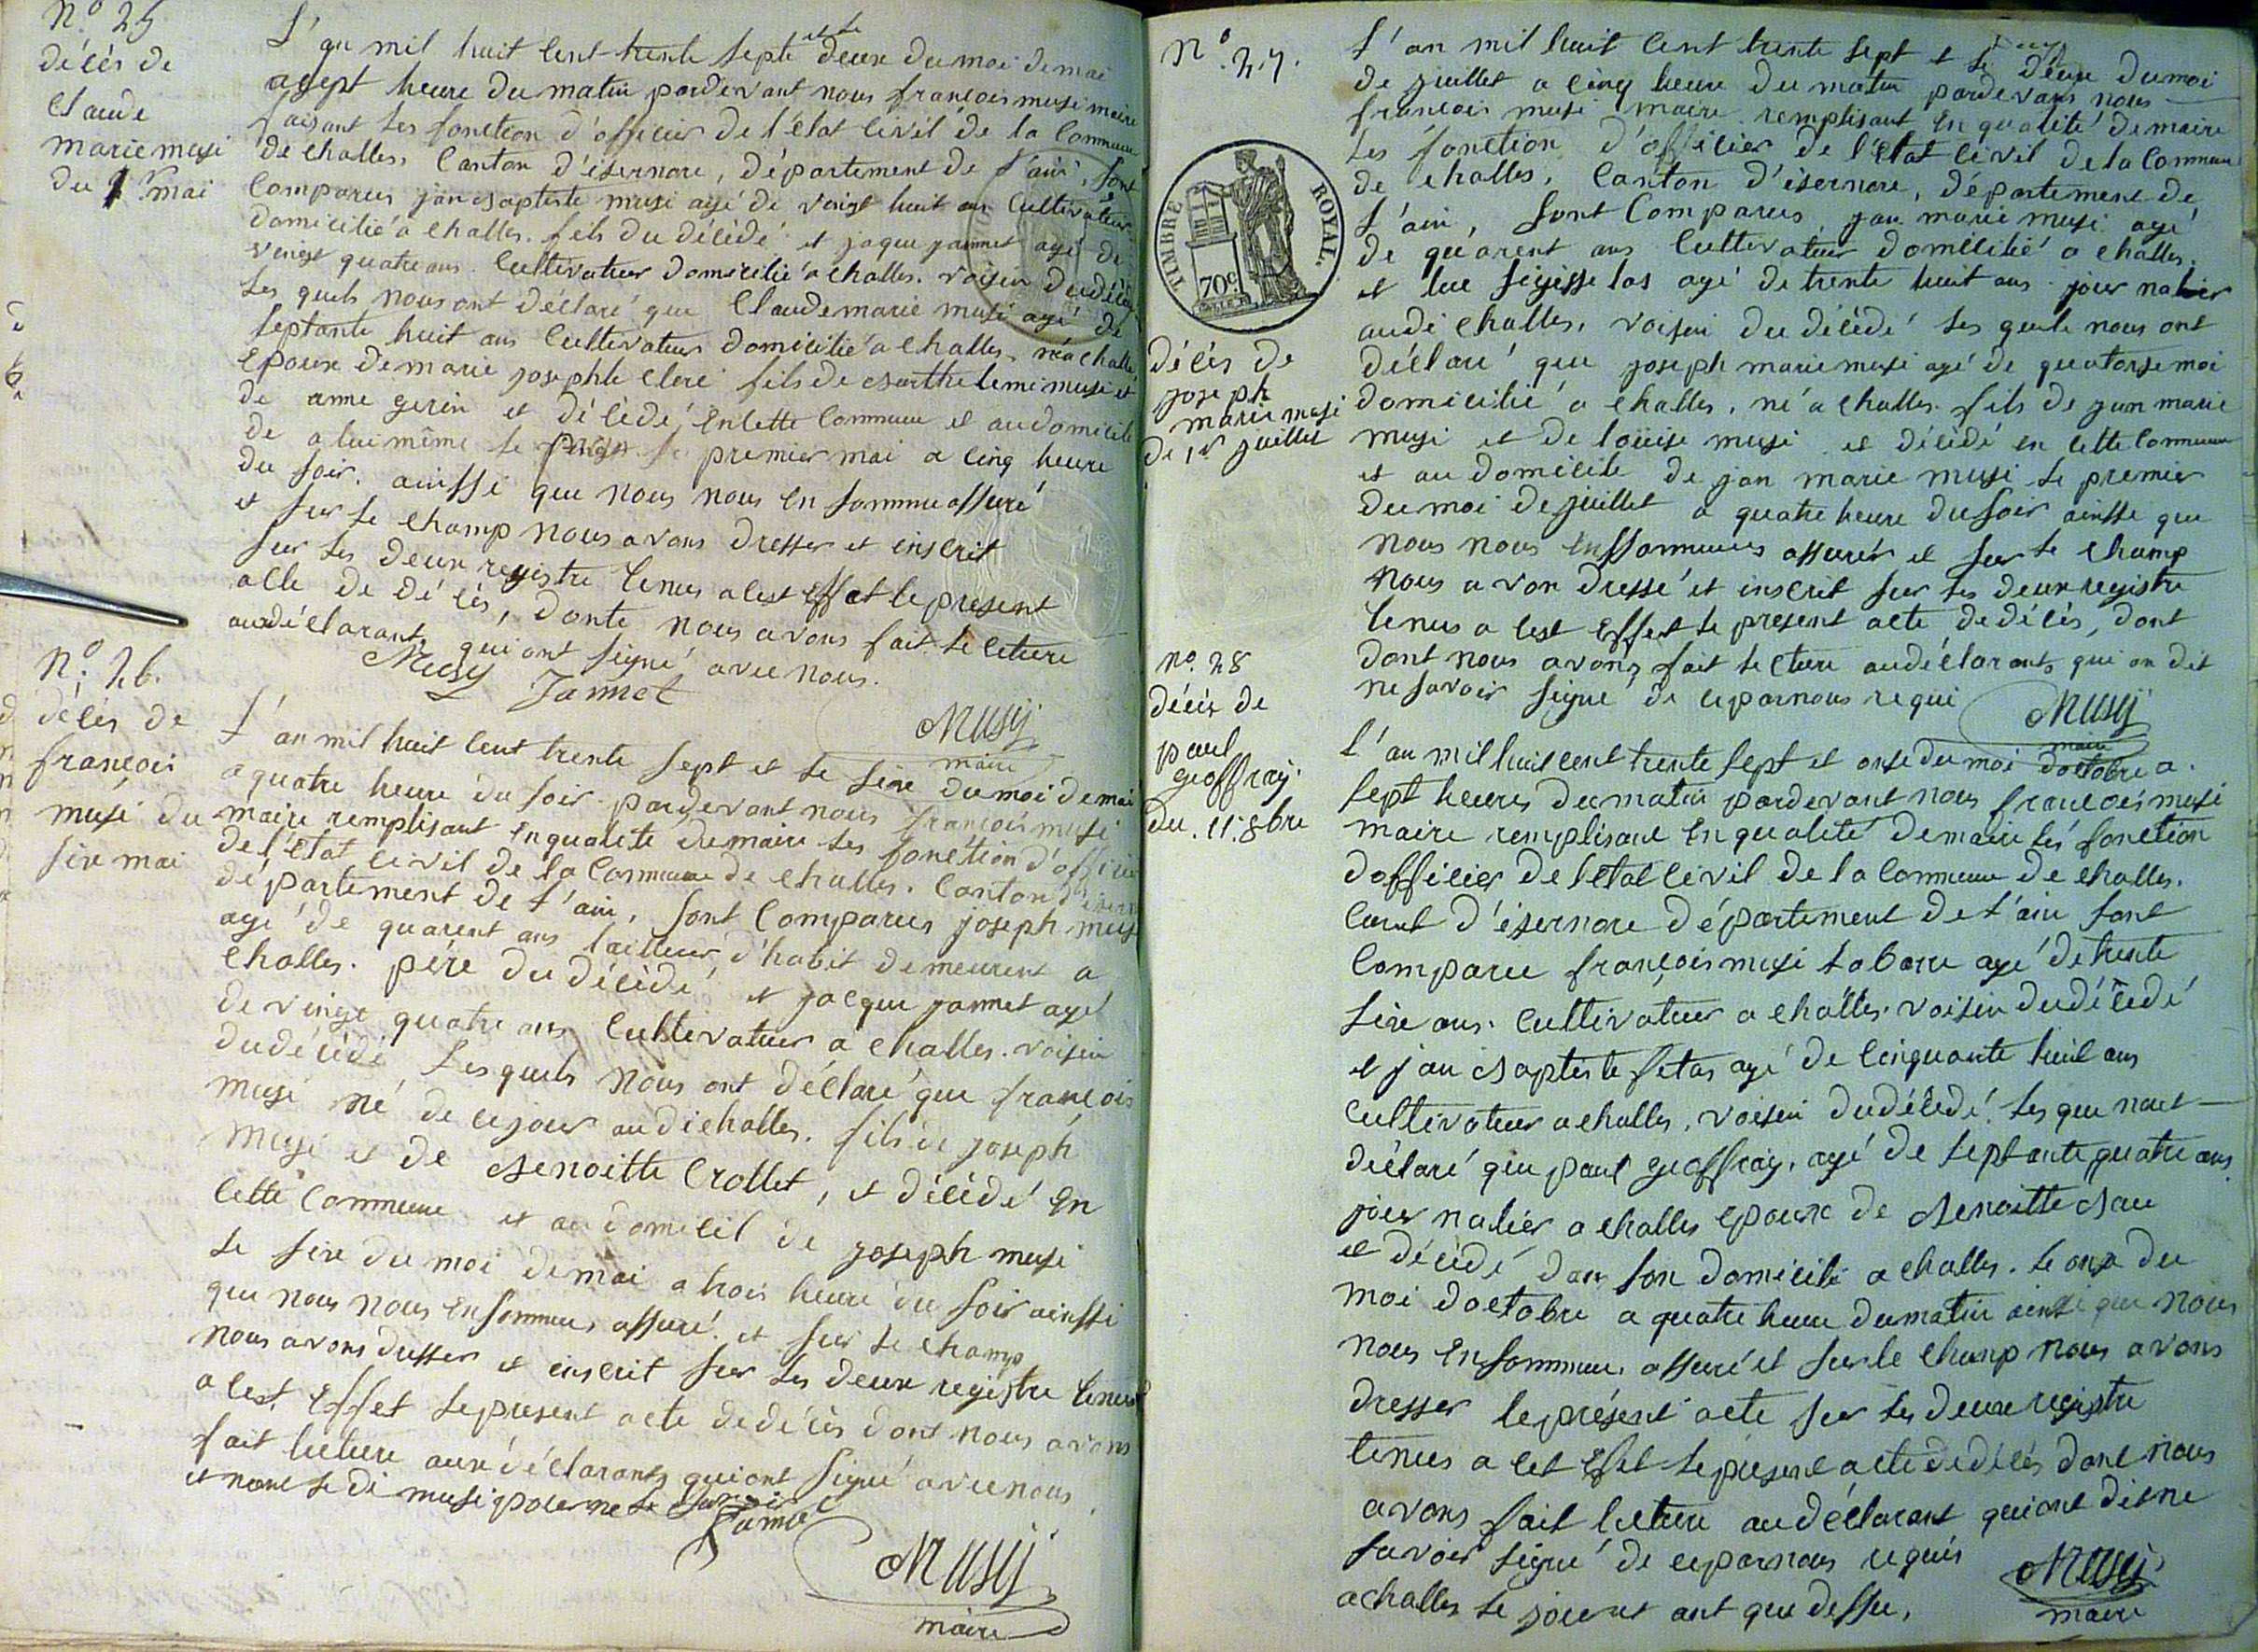 N.o 25
décès de
Claude
marie musi
du 1r mai
L'an mil huit Cent trente septe et le deux du moi de mai
a sept heure du matin pardevant nous francois musi maire
faisant les fonction d'officier de l'état Civil de la Commune
de challes, Canton d'isernore, département de l'ain, sont
Comparus jan Baptiste musi agé de vingt huit ans Cultivateur
domicilié a challes. fils du décédé et jaque jannet agé de
vingt quatre ans Cultivateur domicilié a challes. voisin du décédé
les quels nous ont déclaré que Claude marie musi agé de
septante huit ans Cultivateur domicilié a challes, né a challe
Epoux de marie josephte Clerc fils de Barthelemi musi et
de anne gerin et décédé, En Cette Commune et au domicile
de a lui même le premier mai a Cinq heure
du soir. ainssi que nous nous En sommu assuré
et sur le champ nous avons dresser et inscrit
sur les deux registre tenus a Cest Effet le present
acte de décès, donte nous avons fait le lcture
aux déclarants qui ont signé avec nous.
Musy Jannet
Musy
maire
N.o 26.
décès de
françois
musi du
sixe mai
L'an mil huit Cent trente sept et le sixe du moi de mai
a quatre heure du soir pardevant nous françois musi
maire remplisant En qualité de maire les fonction d'officier
de l'état Civil de la Commune de Challes. Canton d'isern
département de l'ain, sont Comparus joseph musi
agé de quarent ans tailleur d'habit demeurent a
Challes. père du décédé et jacque jannet agé
de vingt quatre ans Cultivateur a challes. voisin
du décédé Les quels nous ont déclaré que françois
musi né de ce jour au di challes. fils de joseph
musi et de Benoitte Crollet, et décédé En
Cette Commune et au domicil de joseph musi
le sixe du moi de mai a trois heure du soir ainssi
que nous nous En sommus assuré. et sur le champ
nous avons dresser et inscrit sur les deux registre tenus
a Cest Effet le present acte de décès dont nous avons
fait lecture aux déclarants qui ont signé avec nous.
et nont le di musi pour ne le savoir
Jannet
Musy
maire
N.o 27.
TIMBRE ROYAL.
70c
décès de
joseph
marie musi
de 1r juillet
L'an mil huit Cent trente sept et le deux du moi
de juillet a Cinq heure du matin pardevans nous
françois musi maire remplisant En qualité de maire
les fonction d'officier de l'état Civil de la Commune
de challes, Canton d'isernore, département de
L'ain, sont Comparus jan marie musi agé
de quarent ans Cultivateur domicilié a challes.
et luc sigisse las agé de trente huit ans jour nalier
au di challes, voisin du décédé les quels nous ont
déclaré que joseph marie musi agé de quatorse moi
domicilié a challes, né a challes fils de jan marie
musi et de loüise musi et décédé en Cette Commune
et au domicile de jan marie musi le premier
du moi de juillet a quatre heure du soir ainsse que
nous nous En ssommues assurér et sur le champ
nous a von dressé et inscrit sur les deux registre
tenus a Cest Effest le present acte de décès, dont
dont nous avons fait lecture au déclarants qui on dit
ne savoir signé de ce par nous requi Musy
maire
no. 28
décès de
paul
geoffray.
du 11. 8bre
L'an mil huit cent trente sept et onse du moi doctobre a
sept heures du matin pardevant nous françois musi
maire remplisant En qualité de maire les fonction
dofficier de létat Civil de la Commune de challes.
Cant d'isernore département de l'ain sont
Comparu françois musi la barre agé de trente
sixe ans. Cultivateur a challes. voisin du décédé
et jan Baptiste Setas agé de Cinquante huit ans
Cultivateur a challes, voisin du décédé. les que nont
déclaré que paul geoffray, agé de septante quatre ans
jour nalier a challes epoux de Benoitte Bau
et décédé dans son domicile a challes. le onse du
moi doctobre a quatre heure du matin ainsi que nous
nous En sommus assuré et sur le champ nous avons
dresser le présent acte sur les deux registre
tenus a Cet Effet le présent acte de décès dont nous
avons fait lecture au déclarant qui ont dit ne
savoir signé de ce par nous requis Musy
a challes le jour et ant que dessu,
maire